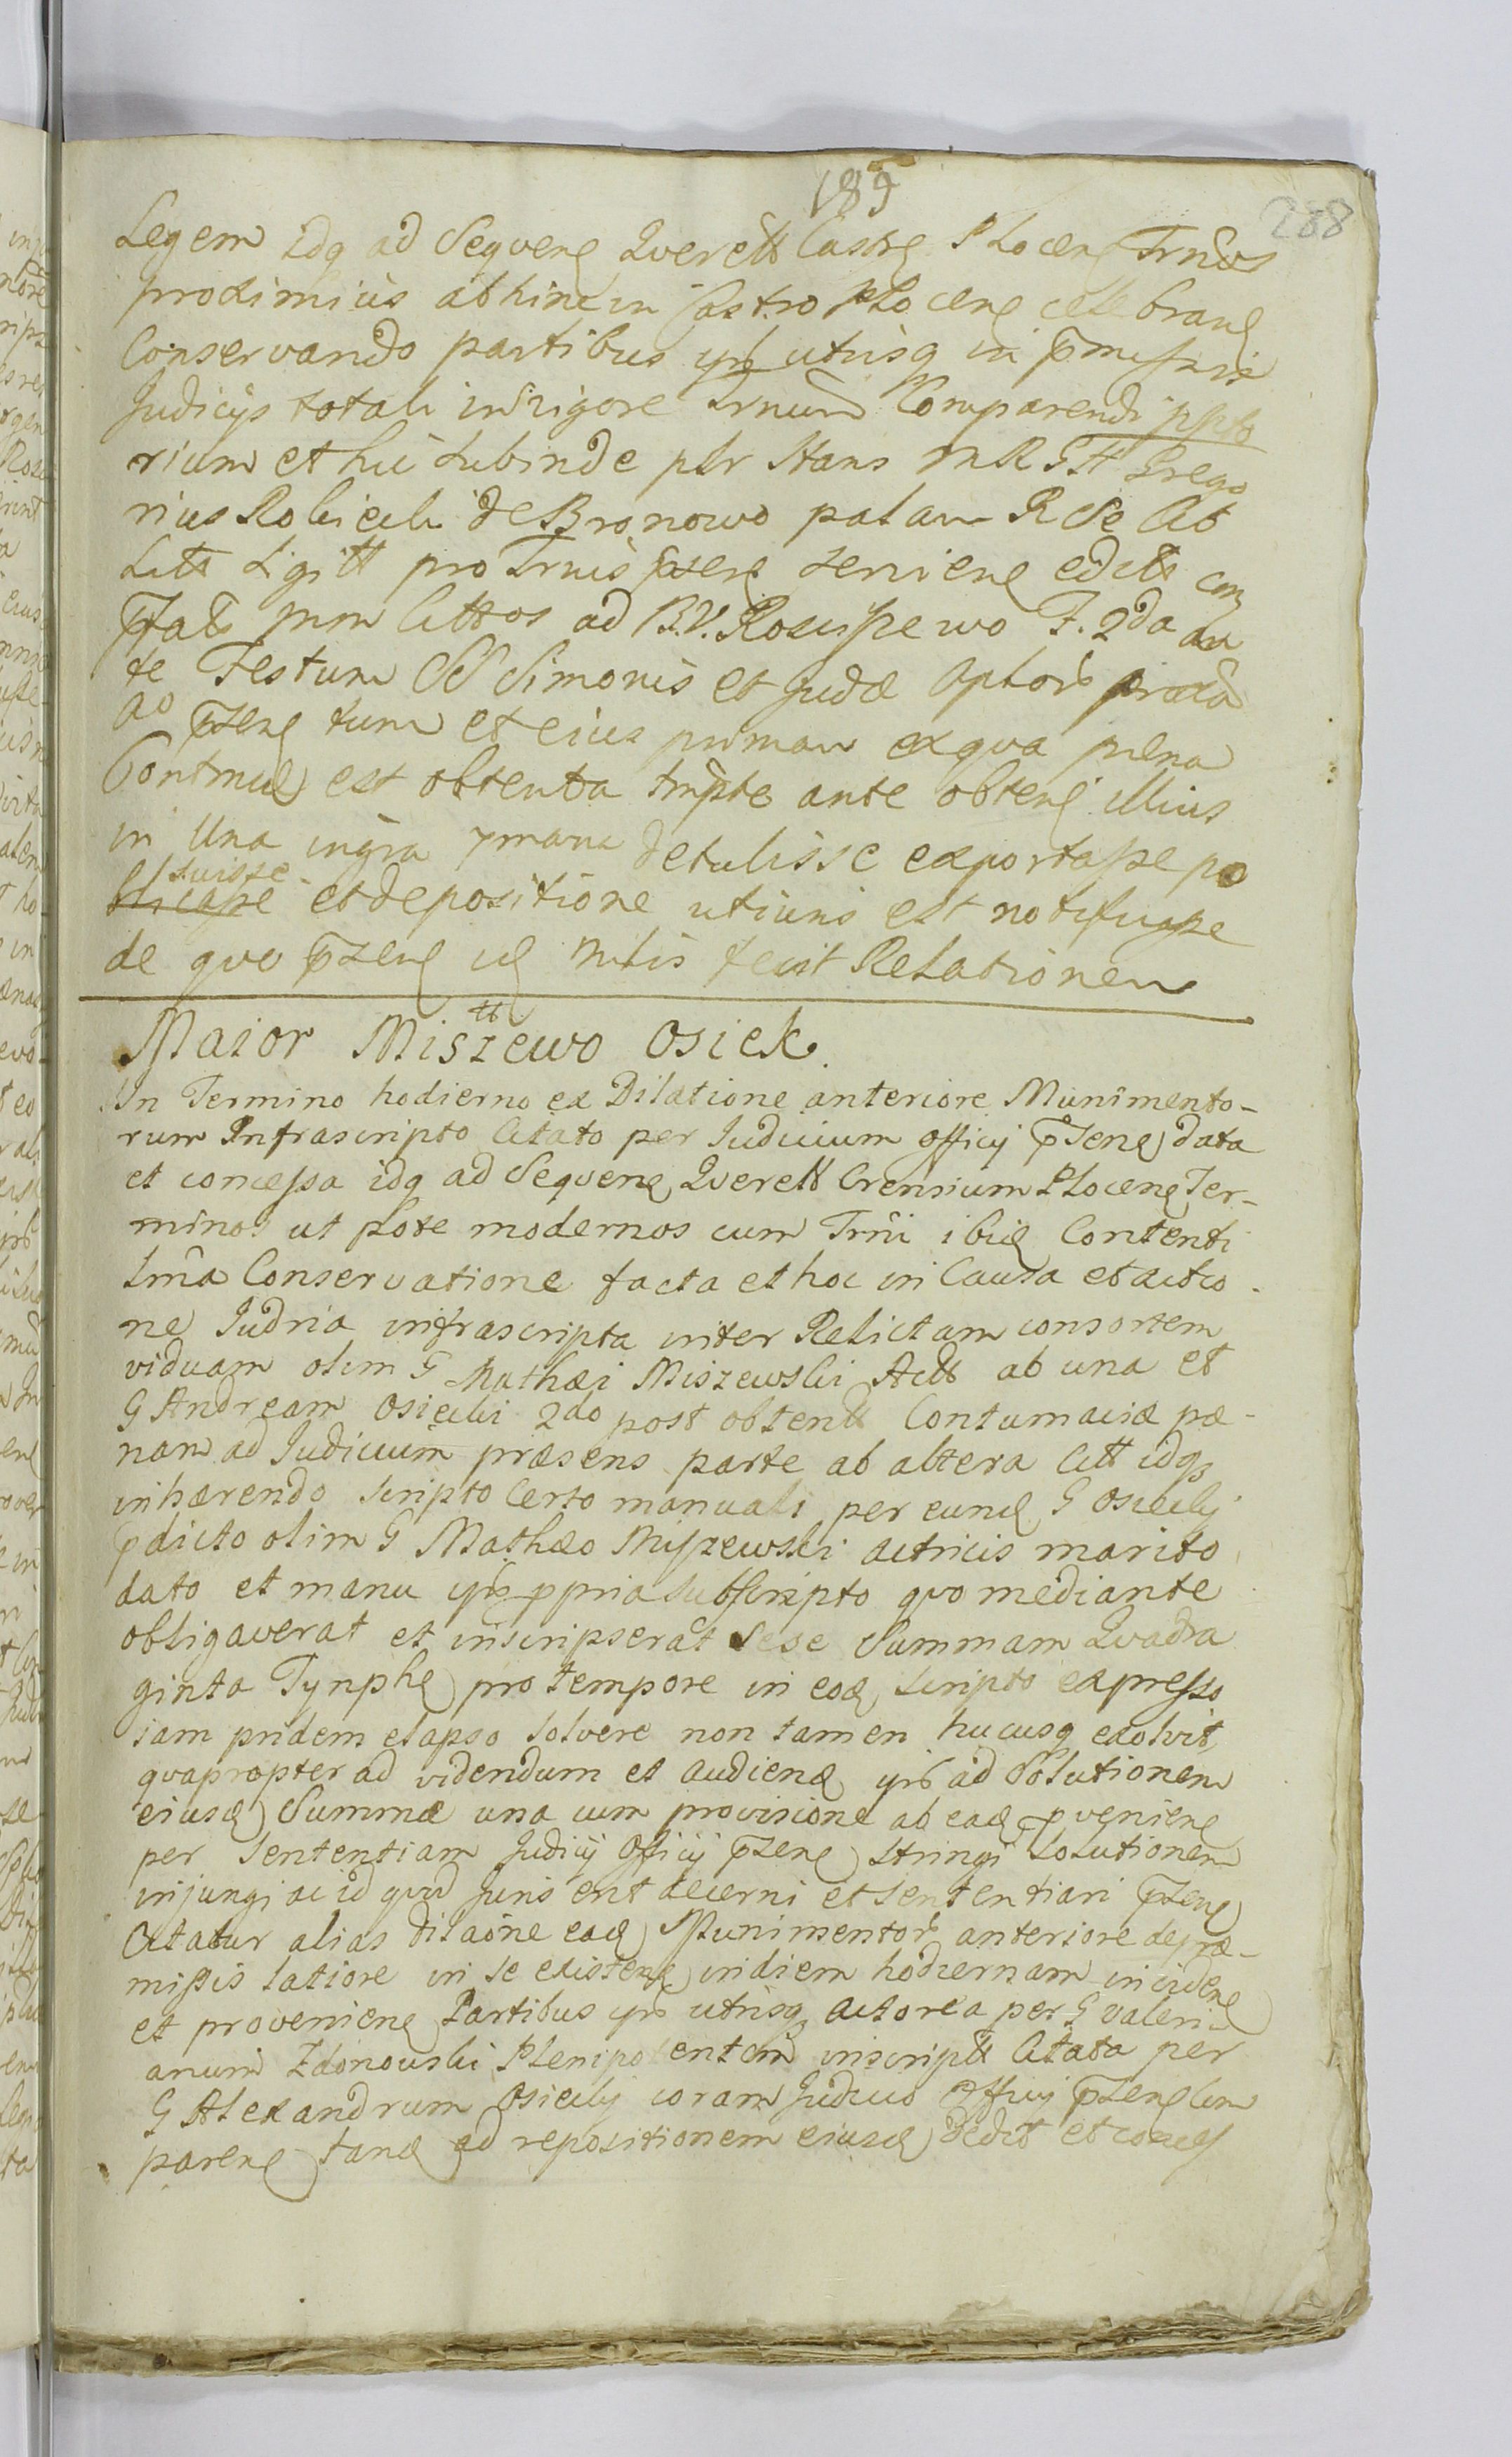 189
288
Legem idq ad Sequenꝭ Querell Castrꝭ Plocenꝭ Trnos
proximius abhinc in Castro Plocenꝭ celebranꝭ
Conservando partibus ipsis utrisq in
Judicijs totali in rigore Trnum Comparendi ppto
rium et hic subinde plr stans Grego
rius Robiecki de Bronowo palam R Se Ab
Litt Sigitt pro Trnis psenꝭ servienꝭ edittꝭ con
ad B.V. Rosciszewo F. 2da an
te Festum SS Simonis et Judæ Aptor proxa
ao p̄senꝭ tum et eius primam ex qva pæna
Contmaꝭ est obtenta ante obtenꝭ illius
in Una detulisse exportasse po
suisse
et depositione uti iuris est notificasse
de quo p̄senꝭ idꝭ Mtis fecit Relationem
Maior Miszewo Osiek.
tt
In Termino hodierno ex Dilatione anteriore Munimento-
rum Infrascripto Citato per Judicium officij p̄senꝭ data
et concessa idq ad Sequenꝭ Querell Crensium Plocenꝭ Ter-
minos ut pote modernos cum Trni ibidꝭ Contenti
Conservatione facta et hoc in Causa et actio
ne Judria infrascripta inter Relictam consortem
viduam olim G Mathæi Miszewski Actt ab una et
G Andream Osiecki 2do post obtent Contumaciæ pæ-
nam ad Judicium præsens parte ab altera Citt idq
inhærendo scripto Certo manuali per eundꝭ G Osiecky
p̄dicto olim G Mathæo Miszewski actricis marito
dato et manu ips ppria subscripto quo mediante
obligaverat et inscripserat Sese Summam Quadra
ginta Tynphꝭ pro tempore in eodꝭ scripto expresso
iam pridem elapso solvere non tamen hucusq exolvit,
qvapropter ad videndum et audiendꝭ ips ad Solutionem
eiusdꝭ Summæ una cum provisione ab eadꝭ pvenienꝭ
per Sententiam Judicij Officij p̄senꝭ stringi Solutionem
injungi ac id quod juris erit decerni et sententiari p̄senꝭ
Citatur alias dilaone eadꝭ Munimentor anteriore de præ-
missis latiore in se existenꝭ in diem hodiernam incidenꝭ
et provenienꝭ Partibus ips utrisq actorea per G Valeri-
anum Zdonowski Plenipotentem inscript Citata per
G Alexandrum Osiecky coram Judicio Officij p̄senꝭ Com
parenꝭ tandꝭ ad repositionem eiusdꝭ dedit et concess